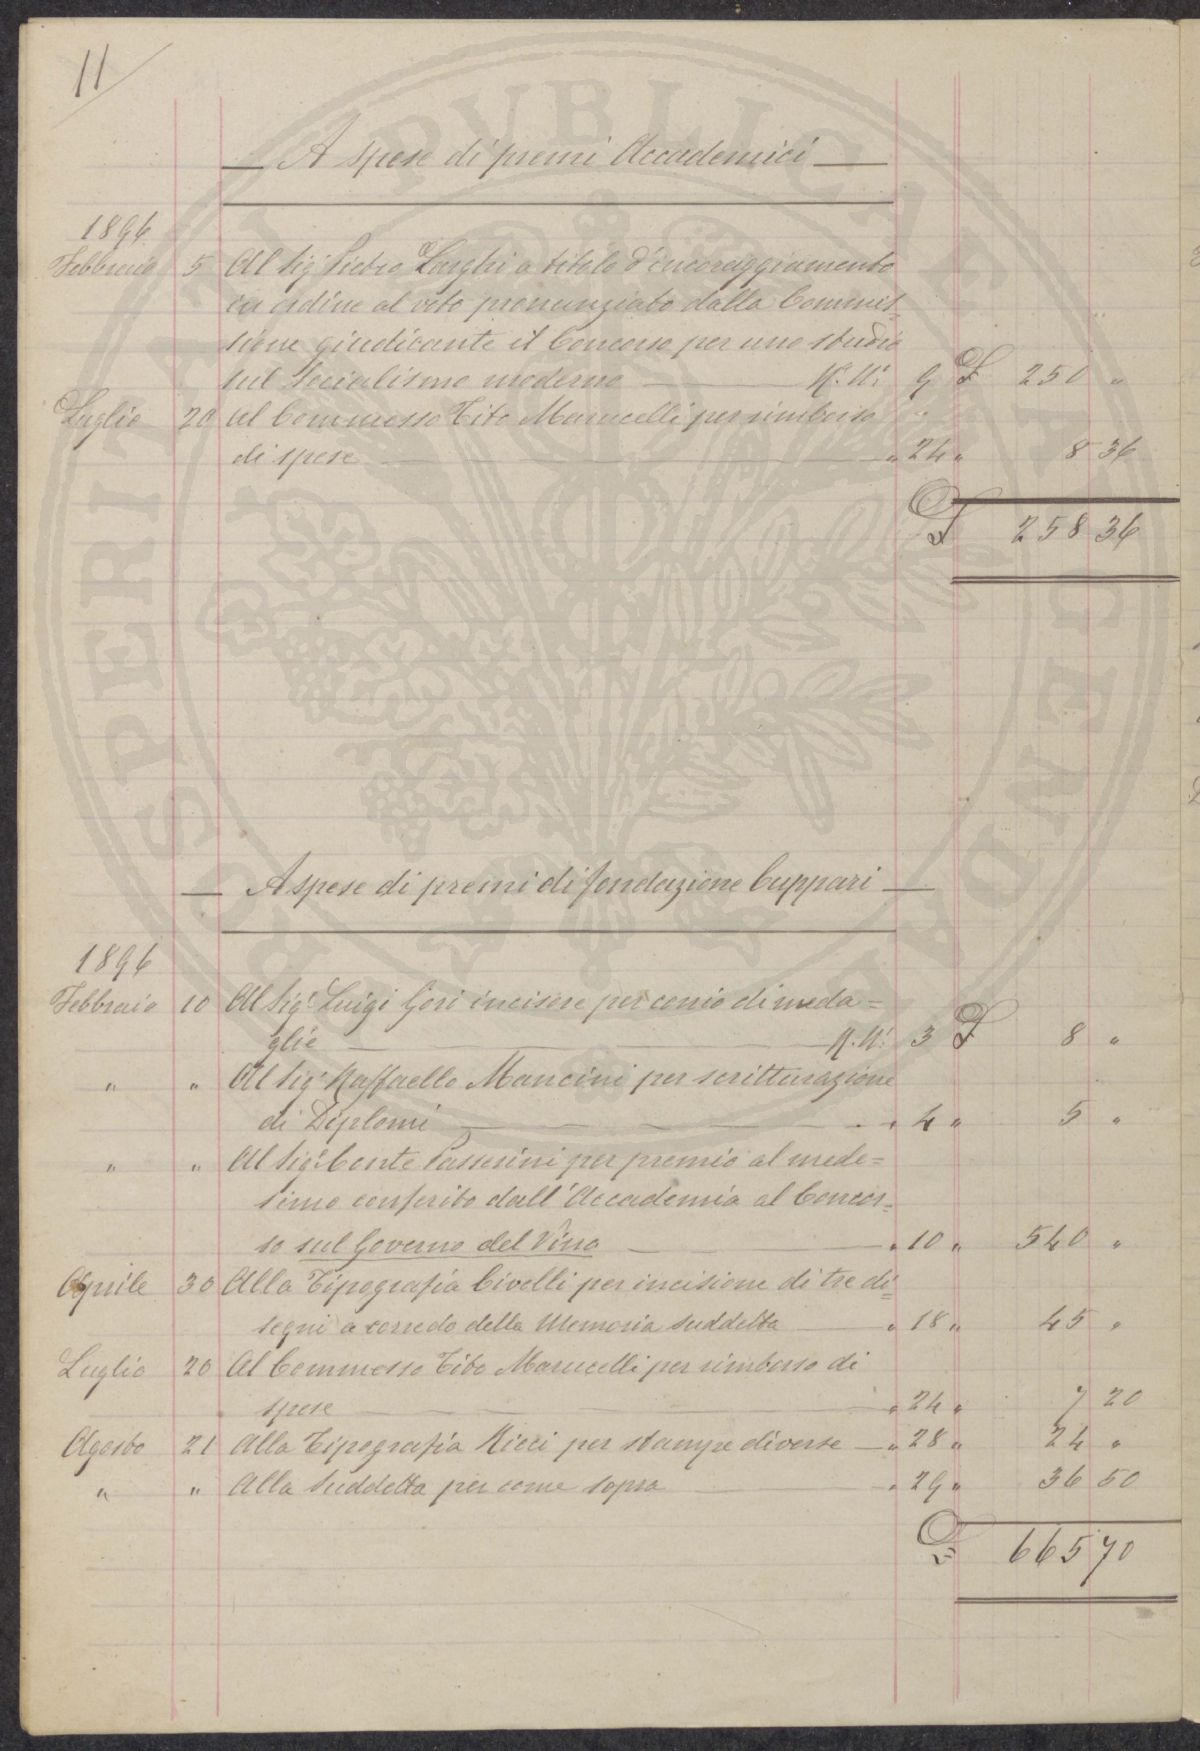 11
A spese di premi Accademici
1896
Febbraio 5 Al Sig.r Pietro Larghi a titolo d'incoraggiamento
in ordine al voto pronunziato dalla Commis-
sione giudicante il Concorso per uno studio
sul Socialismo moderno N. 9 £ 250 "
Luglio 20 Al Commesso Tito Marucelli per rimborso
di spese " 24 " 8 36
£ 258 36
A spese di premi di fondazione Cuppari
1896
Febbraio 10 Al Sig.r Luigi Gori incisore per conio di meda=
glie 3 £ 8 "
" " Al Sig.r Raffaello Mancini per scritturazione
di Diplomi " 4 " 5 "
" " Al Sig.r Conte Passerini per premio al mede=
simo conferito dall'Accademia al Concor=
so sul Governo del Vino " 10 " 540 "
Aprile 30 Alla Tipografia Civelli per incisione di tre di=
segni a corredo della Memoria suddetta " 18 " 45 "
Luglio 20 Al Commesso Tito Marucelli per rimborso di
spese " 24 " 7 20
Agosto 21 Alla Tipografia Ricci per stampe diverse " 28 " 24 "
" " Alla Suddetta per come sopra " 29 " 36 50
£ 665 70
PROSPERITATI PUBLICAE AUGENDAE